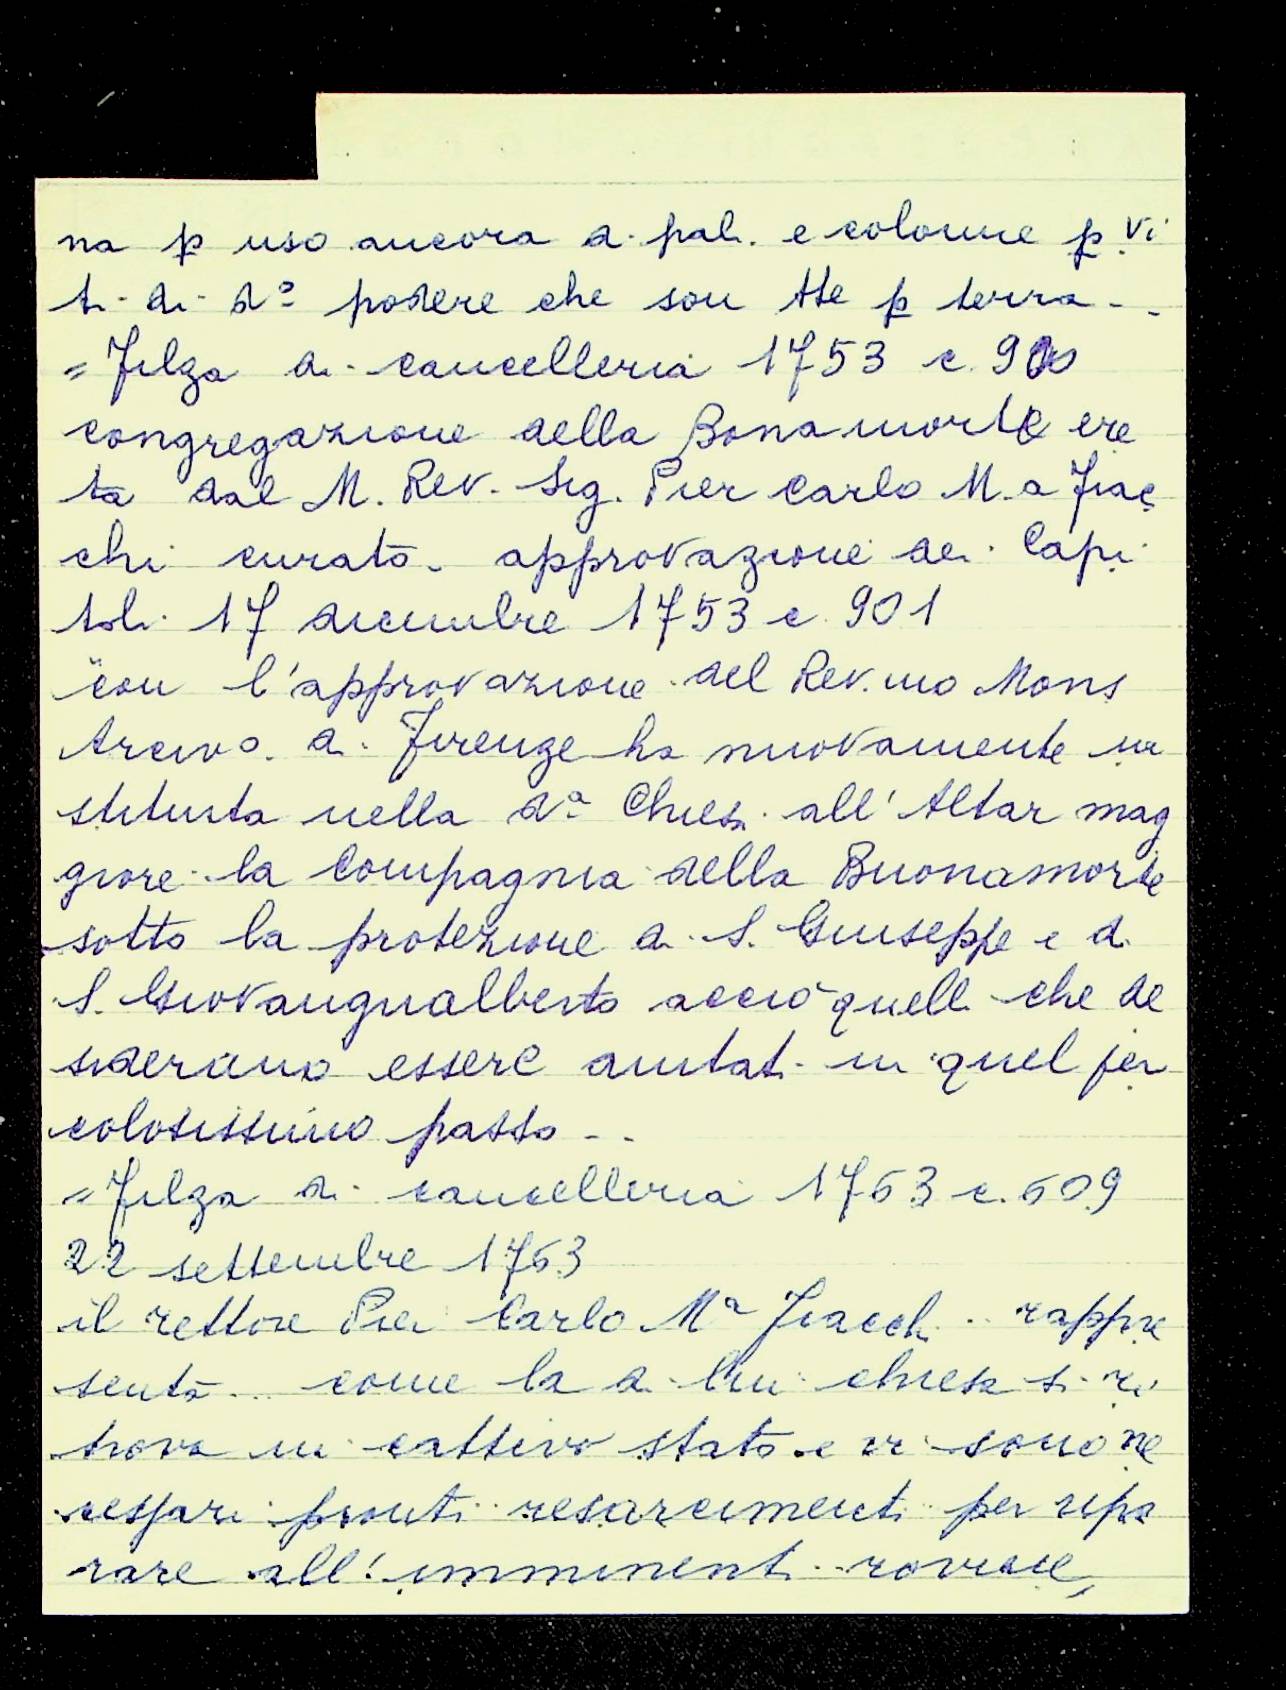 na p uso ancora di pali e colonne p vi
ti di d.o podere che son tte p terra -
= Filza di cancelleria 1753 c. 900
congregazione della Bonamorte ere
ta dal M. Rev. Sig. Pier Carlo M.a Fiac
chi curato - approvazione dei Capi
toli 17 dicembre 1753 c. 901
"con l'approvazione del Rev.mo Mons
Arcivo. di Firenze ha nuovamente in
stituita nella d.a Chiesa all'Altar mag
giore la Compagnia della Buonamorte
sotto la protezione di S. Giuseppe e di
S. Giovangualberto acciò quelli che de
siderano essere aiutati in quel peri
colosissimo passo - -
= Filza di cancelleria 1763 c. 609
22 settembre 1763
il rettore Pier Carlo M.a Fiacchi .. rappre
senta ... come la di lui chiesa si ri
trova in cattivo stato e vi sono ne
cessari pronti resarcimenti per ripa
rare all'imminenti rovine,